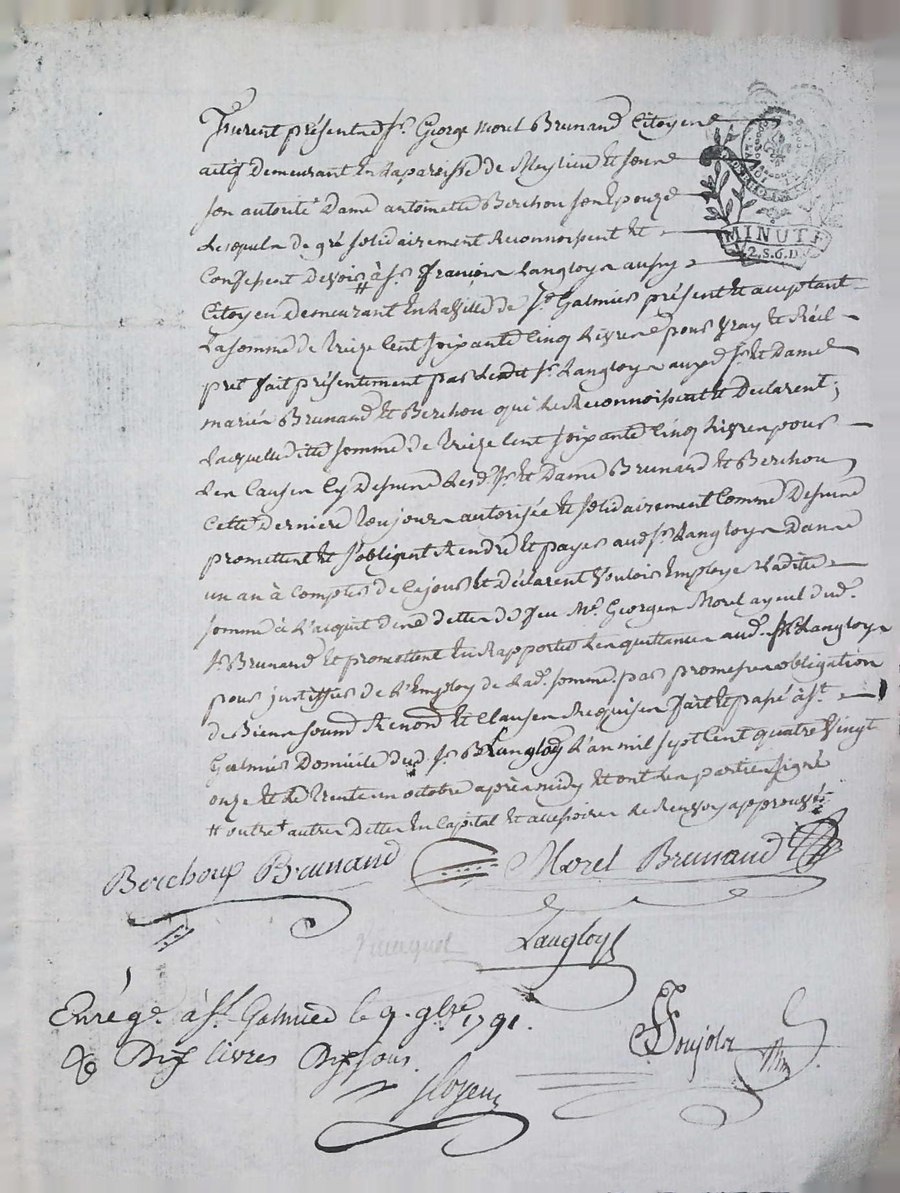 Furent présents Sr. George Morel Brunand Citoyen
actif Demeurant En la paroisse de et sous
son autorité Dame antoinette Berchou son Epouze
Lesquels de gré solidairement Reconnoissent et
Confessent Devoir # à Sr. François Langloys aussy
Citoyen Demeurant En la Ville de St. Galmier présent et acceptant
La somme de treize Cent soixante Cinq Livres pour Vray et Réel
pret fait présentement par Ledit Sr. Langloys auxd. Sr. et Dame
mariés Brunand et Berchou qui le Reconnoissent et Déclarent;
Laquelle ditte somme de treize Cent soixante Cinq Livres pour
Les Causes Cy Dessus Lesd. Sr. et Dame Brunand et Berchou
Cette Derniere toujours autorisée et solidairement Comme Dessus
promettent et s'obligent Rendre et payer aud. Sr. Langloys Dans
un an à Compter de Ce jour et Déclarent Vouloir Employer Ladite
somme à L'acquit des dettes de feu Me. Georges Morel ayeul dud.
Sr. Brunand et promettent En Rapporter Les quittances aud. Sr. Langloys
pour justiffier de L'Employ de Lad. somme, par promesses obligation
de Biens soumd. Renond. et Clauses Requises fait et passé à St.
Galmier Domicile dud. Sr. Langloys L'an mil sept Cent quatre Vingt
onze et Le trente un octobre après midy et ont Les parties signé
# outre autres Dettes En Capital et accessoires Le Renvoy approuvé
Berchoux Brunand Morel Brunand
Langloys
Enrégé. à St. Galmier le 9. 9bre. 1791.
Dix livres Dix sous.
MINUTE
2.S.6.D.